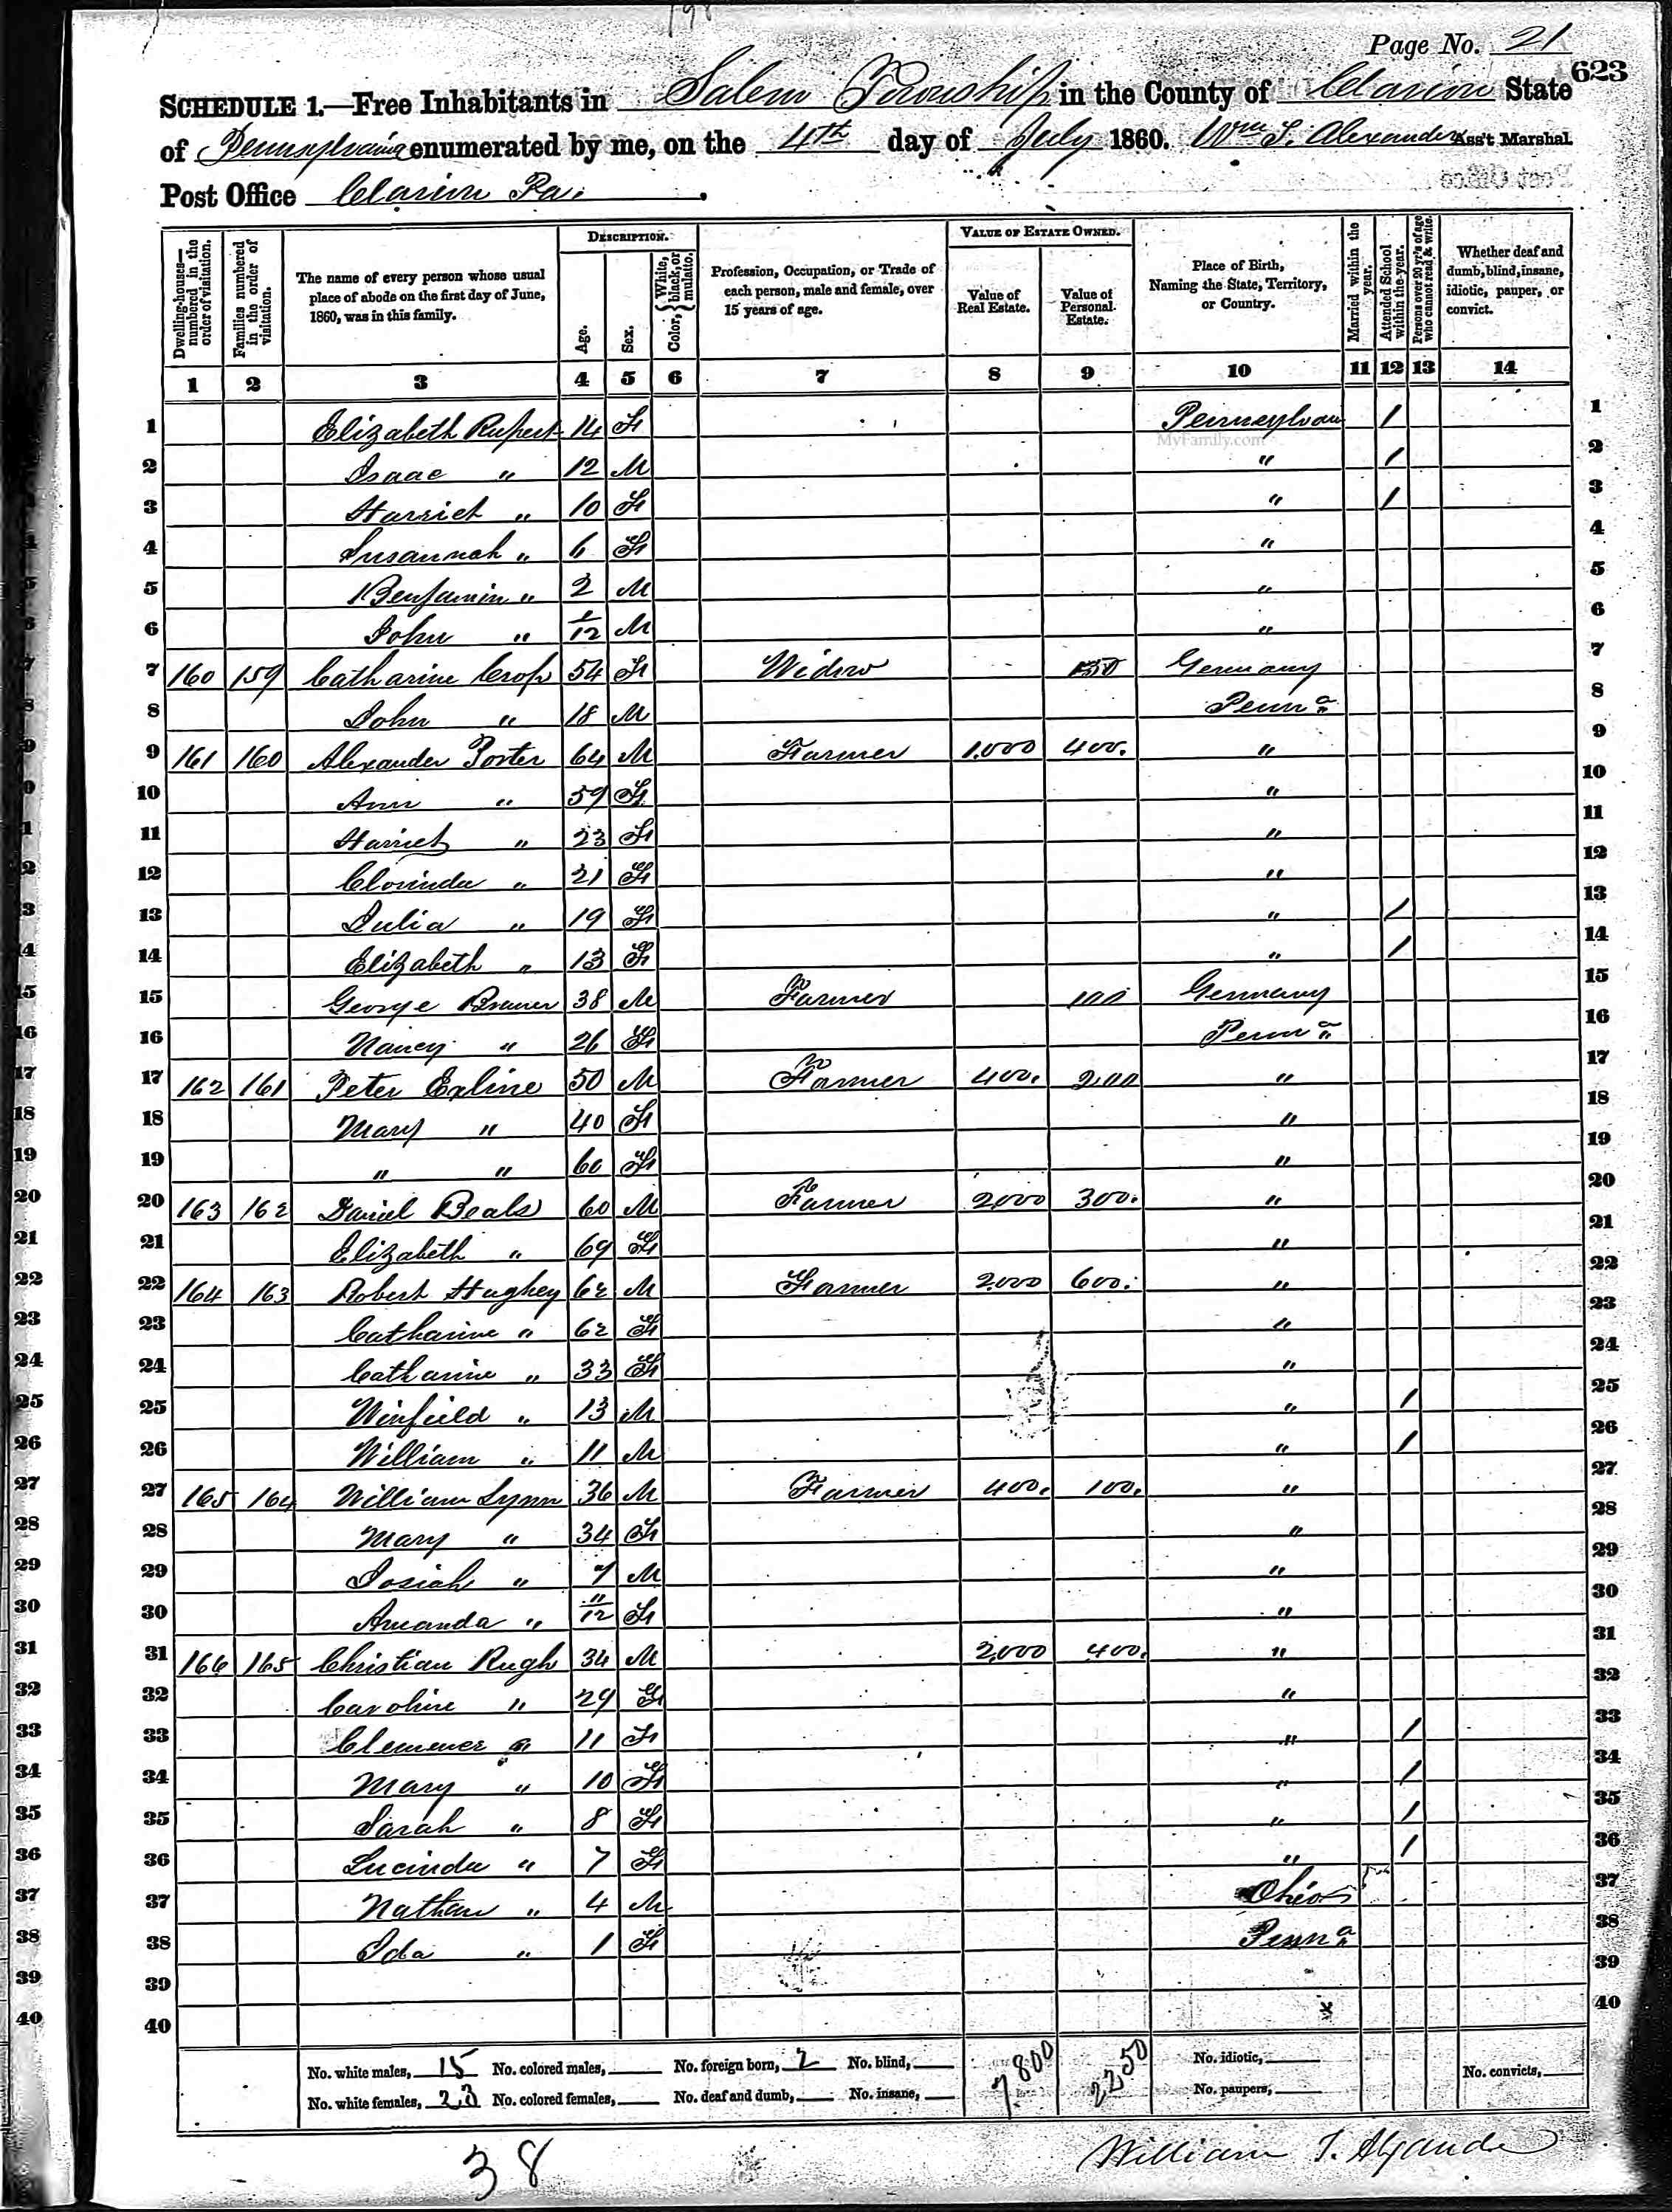 Page No. 21
623
SCHEDULE 1.—Free Inhabitants in Salem Township in the County of Clarion State
of Pennsylvania enumerated by me, on the 4th day of July 1860. Wm T. Alexander Ass't Marshal.
Post Office Clarion Pa.
Post Office
Dwelling-houses—numbered in the order of visitation.
Families numbered in the order of visitation.
The name of every person whose usual place of abode on the first day of June, 1860, was in this family.
DESCRIPTION.
Age.
Sex.
Color, White, black, or mulatto.
Profession, Occupation, or Trade of each person, male and female, over 15 years of age.
VALUE OF ESTATE OWNED.
Value of Real Estate.
Value of Personal Estate.
Place of Birth, Naming the State, Territory, or Country.
Married within the year.
Attended School within the year.
Persons over 20 yr's of age who cannot read & write.
Whether deaf and dumb, blind, insane, idiotic, pauper, or convict.
1 2 3 4 5 6 7 8 9 10 11 12 13 14
1 Elizabeth Rupert 14 F Pennsylvan / 1
MyFamily.com
2 Isaac " 12 M " / 2
3 Harriet " 10 F " / 3
4 Susannah " 6 F " 4
5 Benjamin " 2 M " 5
6 John " 1/12 M " 6
7 160 159 Catharine Crop 54 F Widow 150 Germany 7
8 John " 18 M Penna 8
9 161 160 Alexander Porter 64 M Farmer 1.000 400. " 9
10 Ann " 59 F " 10
11 Harriet " 23 F " 11
12 Clorinda " 21 F " 12
13 Julia " 19 F " / 13
14 Elizabeth " 13 F " / 14
15 George 38 M Farmer 100 Germany 15
16 Nancy " 26 F Penna 16
17 162 161 Peter Exline 50 M Farmer 400. 200 " 17
18 Mary " 40 F " 18
19 " " 60 F " 19
20 163 162 Daniel Beals 60 M Farmer 2000 300. " 20
21 Elizabeth " 69 F " 21
22 164 163 Robert Hughey 62 M Farmer 2000 600. " 22
23 Catharine " 62 F " 23
24 Catharine " 33 F " 24
25 Winfield " 13 M " / 25
26 William " 11 M " / 26
27 165 164 William Lynn 36 M Farmer 400. 100. " 27
28 Mary " 34 F " 28
29 Josiah " 7 M " 29
30 Amanda " 11/12 F " 30
31 166 165 Christian Rugh 34 M 2,000 400. " 31
32 Caroline " 29 F " 32
33 Clemener " 11 F " / 33
34 Mary " 10 F " / 34
35 Sarah " 8 F " / 35
36 Lucinda " 7 F " / 36
37 Nathan " 4 M Ohio 37
38 Ida " 1 F Penna 38
39 39
40 40
No. white males, 15 No. colored males, No. foreign born, 2 No. blind, 7800 2250 No. idiotic,
No. white females, 23 No. colored females, No. deaf and dumb, No. insane, No. paupers, No. convicts,
38
William T.